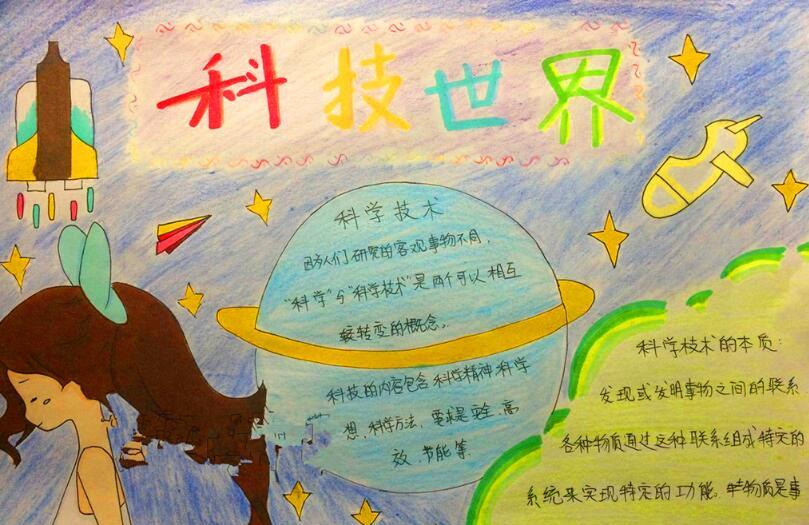 科技世界
科学技术
因为人们研究的客观事物不同，
“科学”与“科学技术”是两个可以相互
转变的概念。
科技的内容包含科学精神科学
想，科学方法，要求是安全、高
效、节能等.
科学技术的本质：
发现或发明事物之间的联系
各种物质通过这种联系组成特定的
系统来实现特定的功能。物质是事